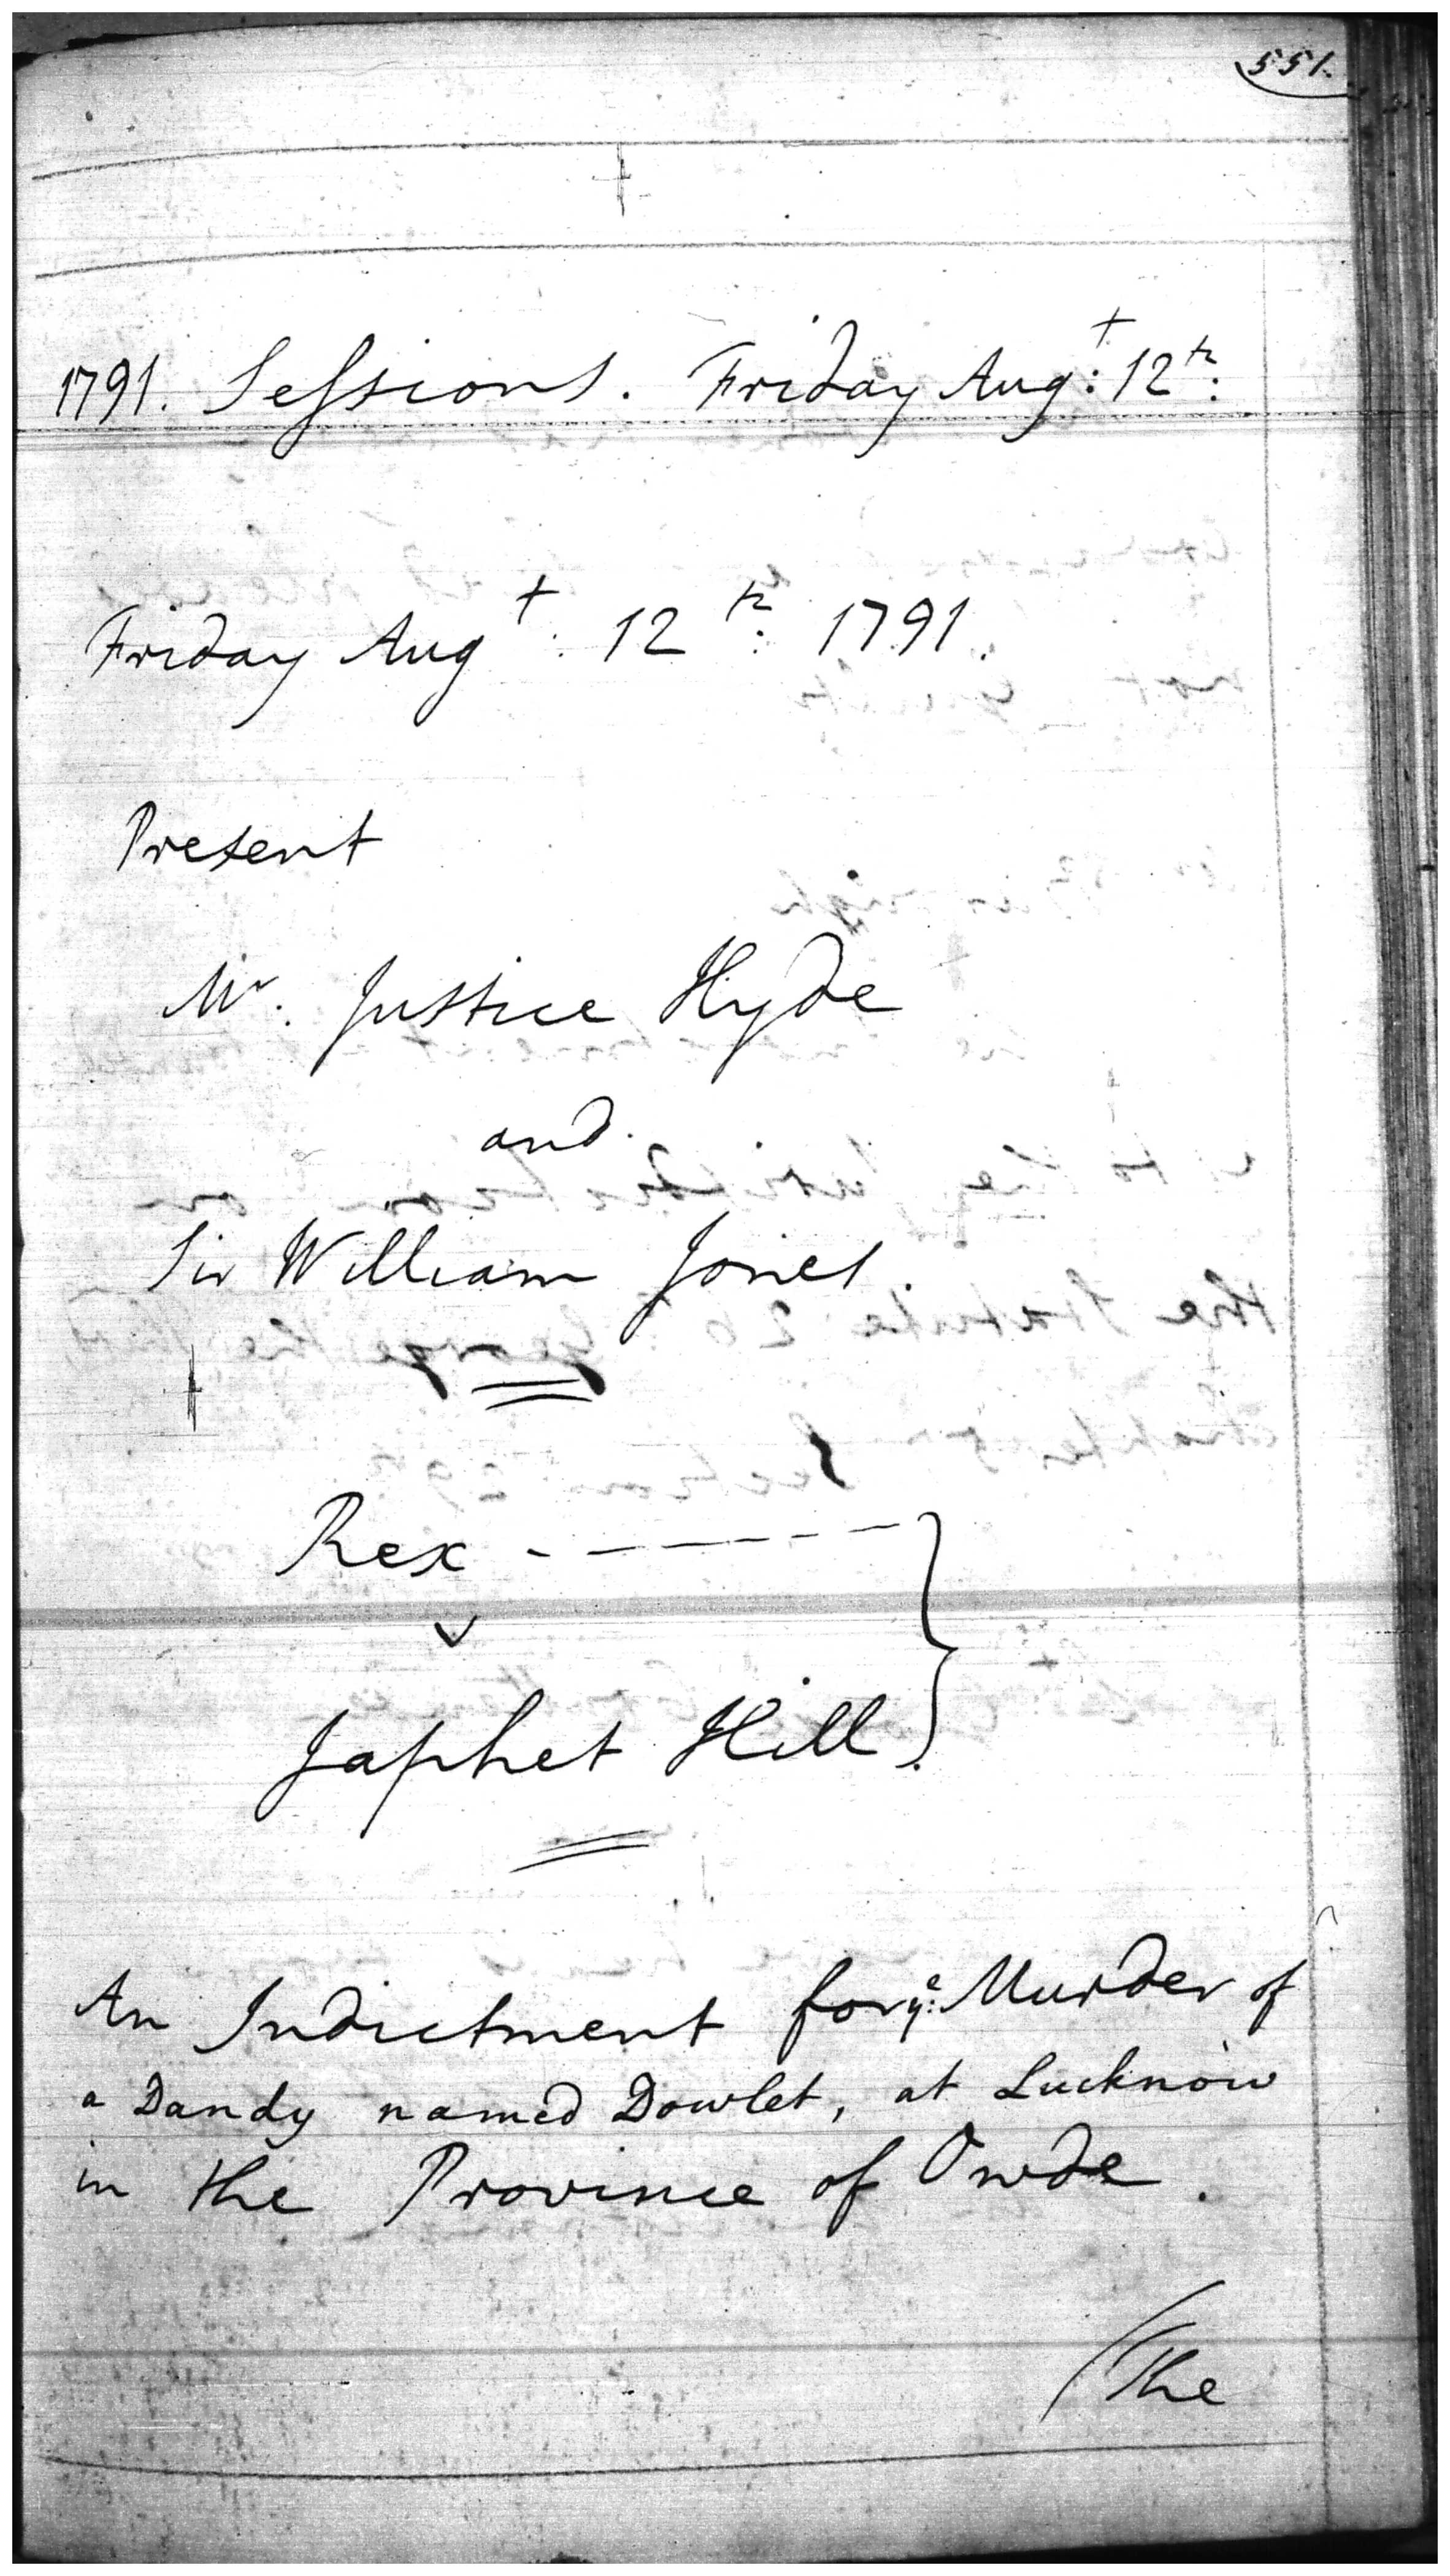 551.
1791. Sessions. Friday Augt: 12th:
Friday Augt: 12th: 1791.
Present
Mr. Justice Hyde
and
Sir William Jones.
Rex - - - - - - }
v
Japhet Hill.
An Indictment for ye: Murder of
a Dandy named Dowlet, at Lucknow
in the Province of Owde.
(The